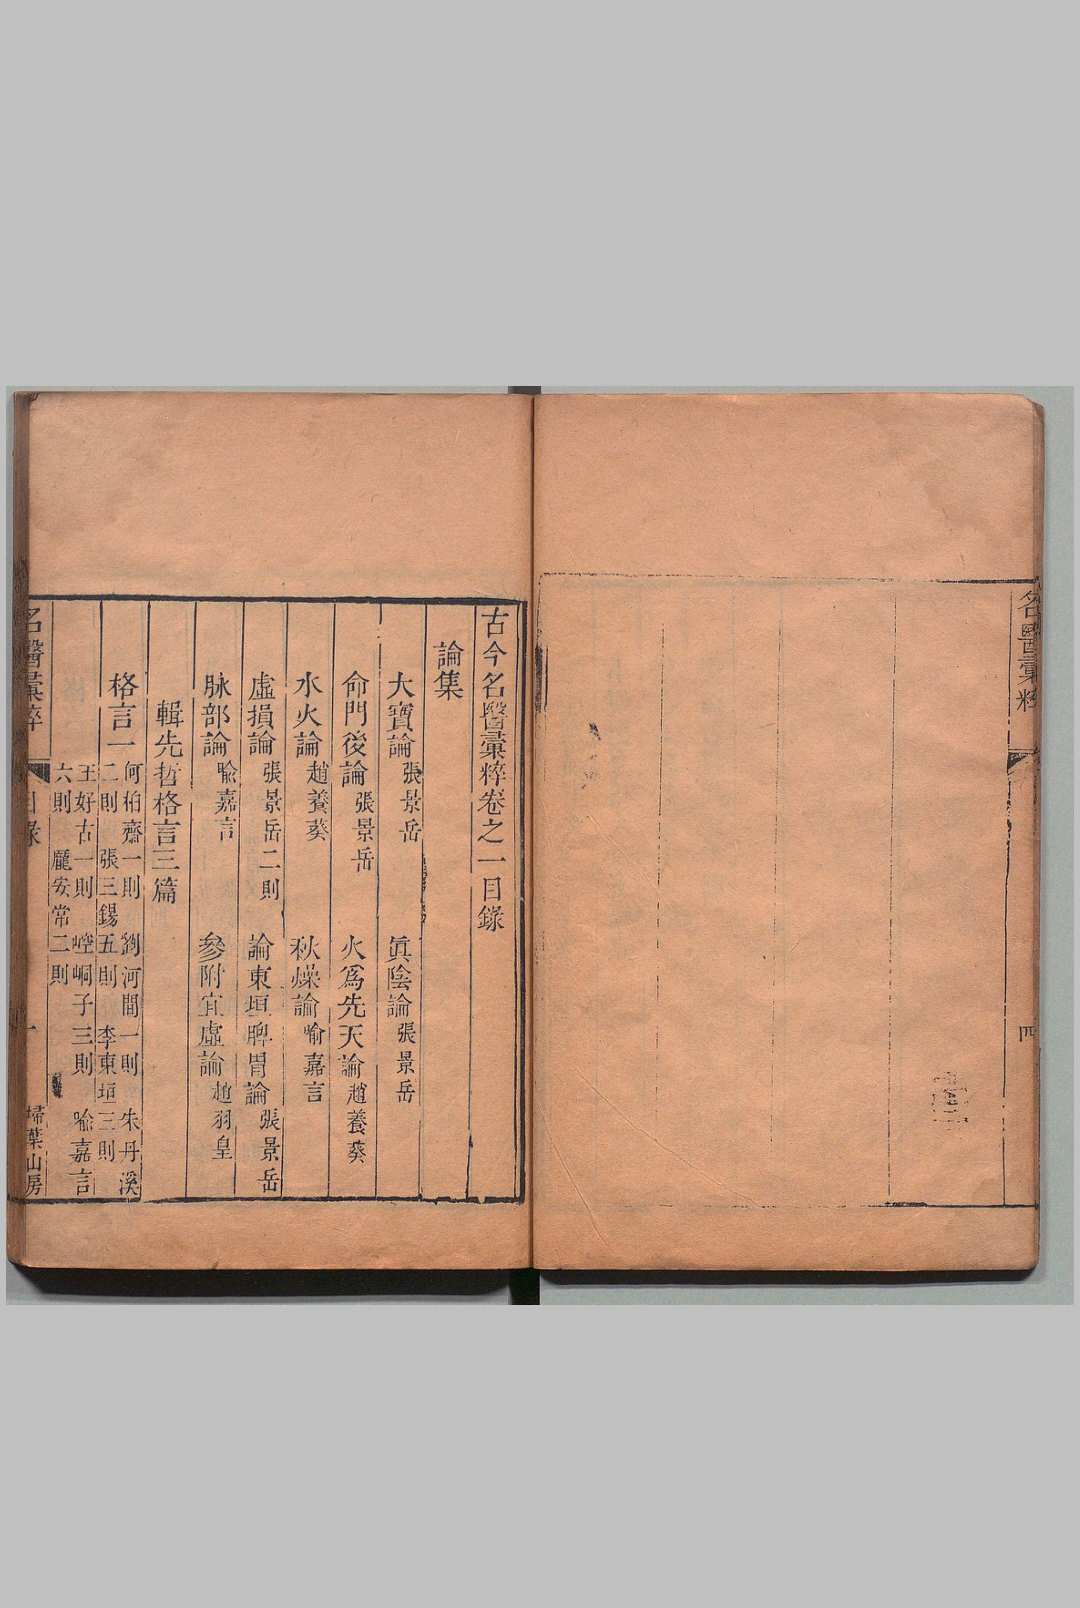 名醫彙粹
四
古今名醫彙粹卷之一目錄
論集
大寶論 張景岳 眞陰論 張景岳
命門後論 張景岳 火爲先天論 趙養葵
水火論 趙養葵 秋燥論 喻嘉言
虛損論 張景岳二則 論東垣脾胃論 張景岳
脉部論 喻嘉言 參附宜虛論 趙羽皇
輯先哲格言三篇
格言一 何栢齋一則 劉河間一則 朱丹溪
二則 張三錫五則 李東垣三則
王好古一則 崆峒子三則 喻嘉言
六則 龐安常二則
名醫彙粹 目錄 一 掃葉山房